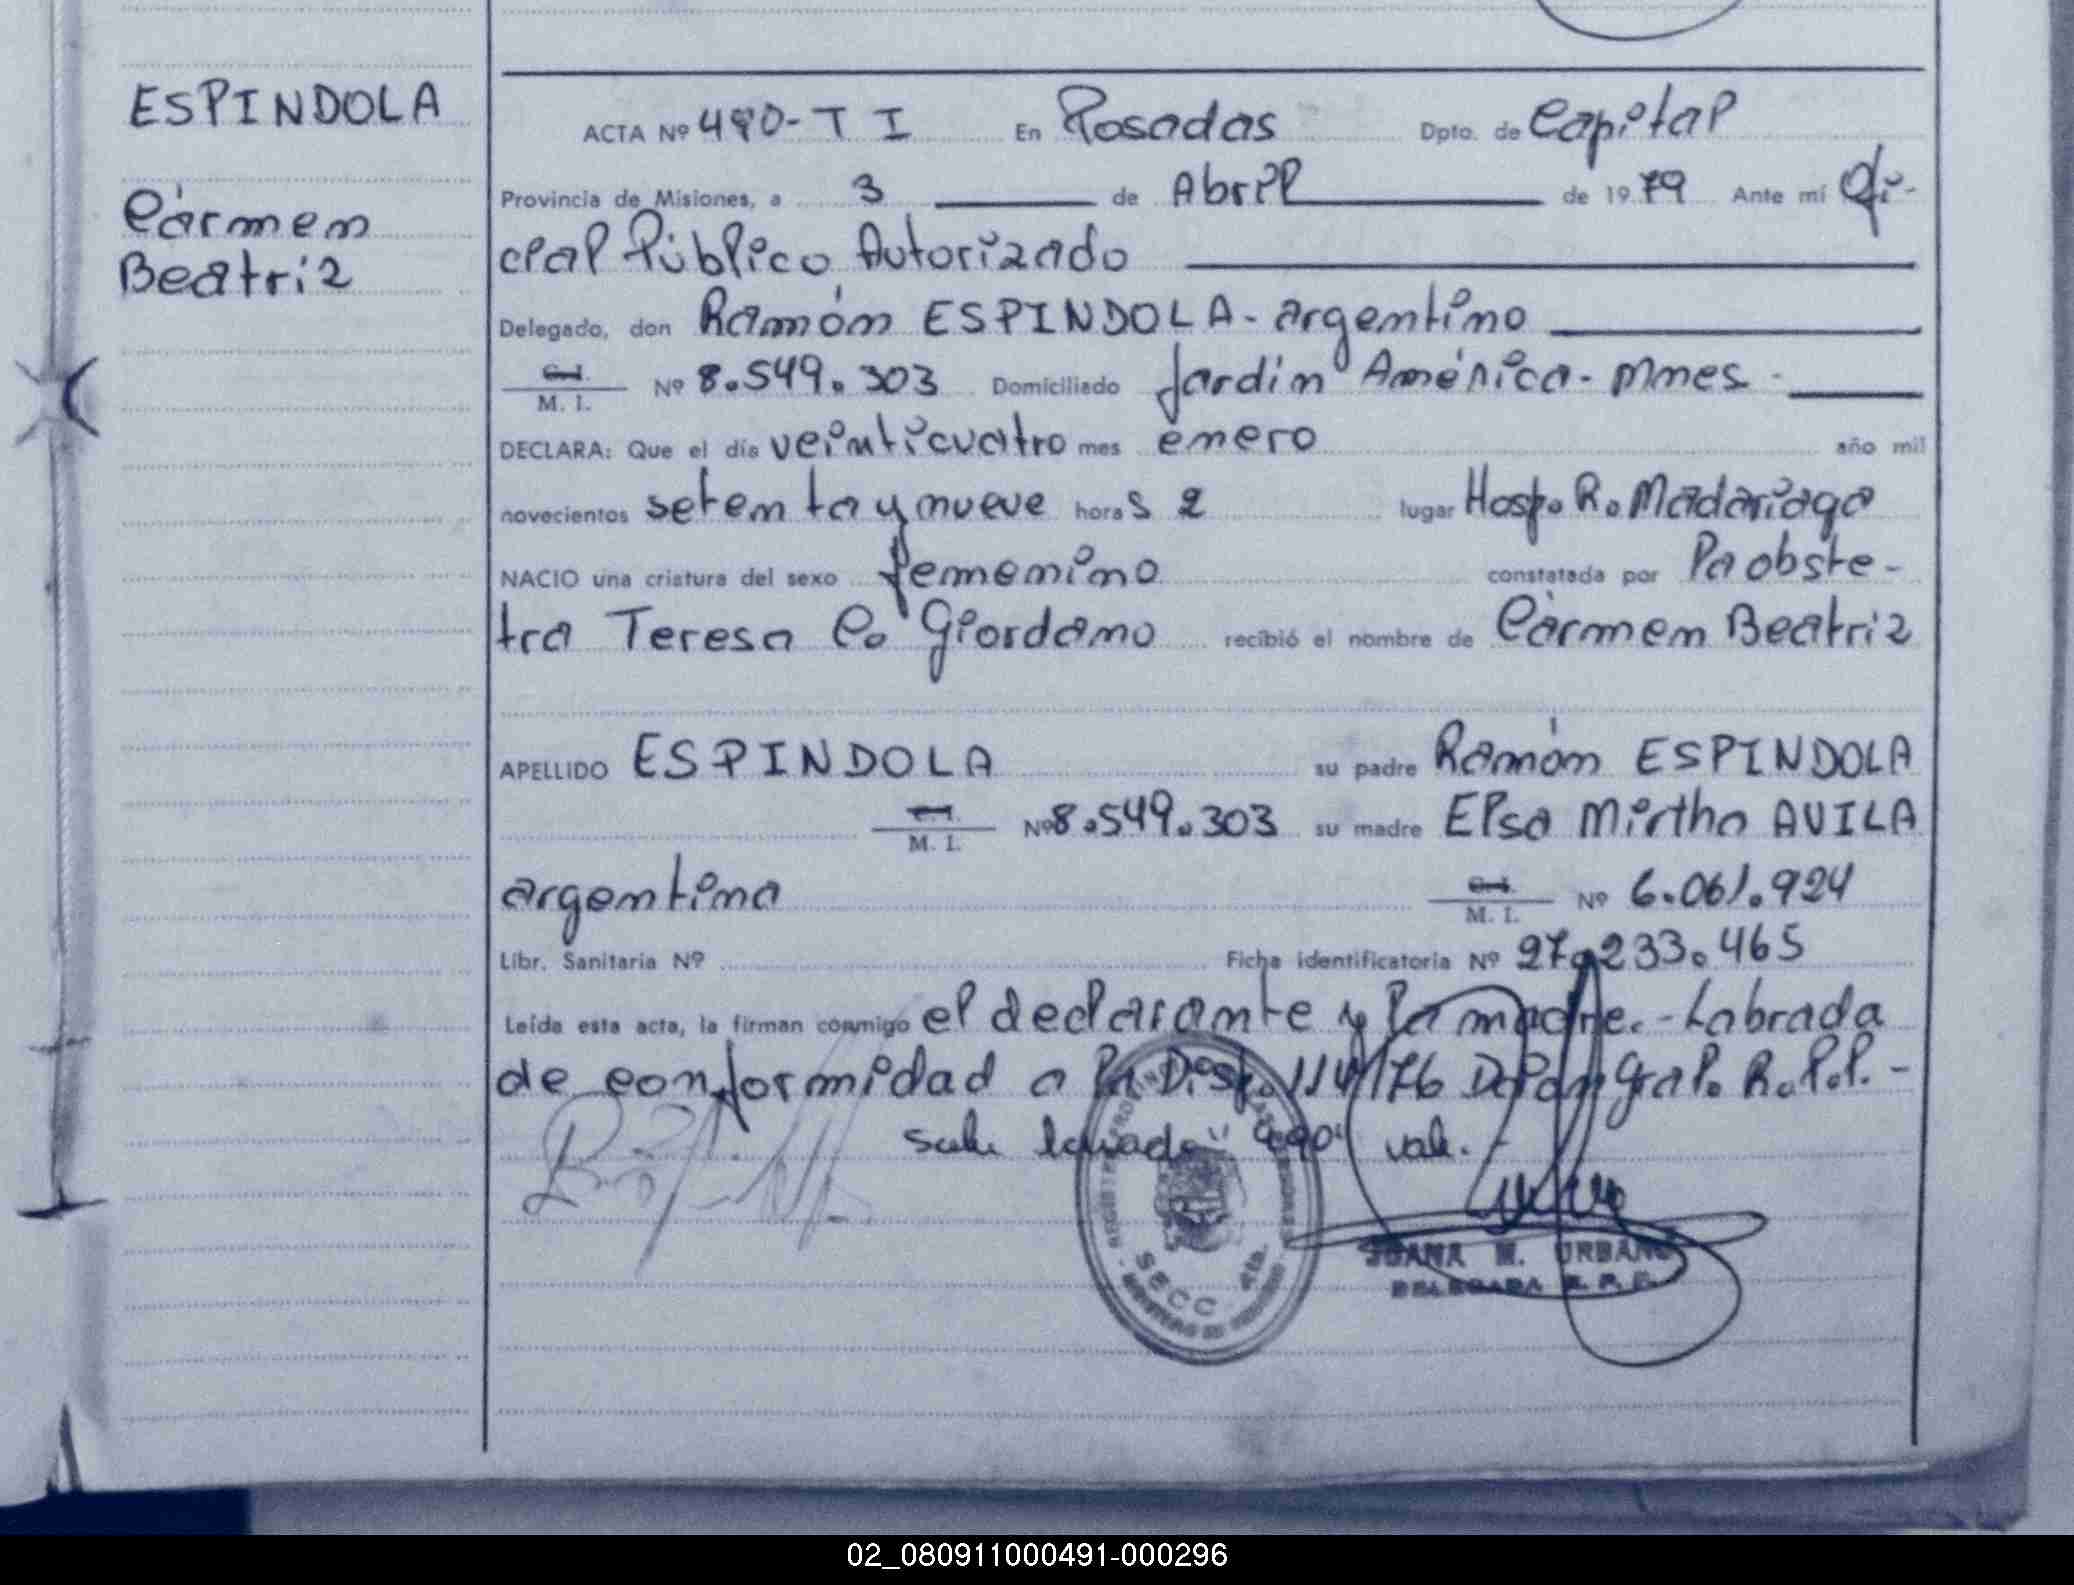 ESPINDOLA
Cármen
Beatriz
ACTA Nº 490-T I En Posadas Dpto. de Capital
Provincia de Misiones, a 3 de Abril de 1979 Ante mí Ofi-
cial Público Autorizado
Delegado, don Ramón ESPINDOLA- argentino
C.I. M. I. Nº 8.549.303 Domiciliado Jardín América- Mnes -
DECLARA: Que el día veinticuatro mes enero año mil
novecientos setenta y nueve horas 2 lugar Hosp. R. Madariaga
NACIO una criatura del sexo femenino constatada por la obste-
tra Teresa C. Giordano recibió el nombre de Cármen Beatriz
APELLIDO ESPINDOLA su padre Ramón ESPINDOLA
M. I. Nº 8.549.303 su madre Elsa Mirtha AVILA
argentina C.I. M. I. Nº 6.061.924
Libr. Sanitaria Nº Ficha identificatoria Nº 27.233.465
Leída esta acta, la firman conmigo el declarante y la madre.-Labrada
de conformidad a la Disp. 114/76 Gral. R.P.P.-
"490" vale.-
SECC. 4ta.
JUANA M. URBANO
DELEGADA R. P. P.
02_080911000491-000296